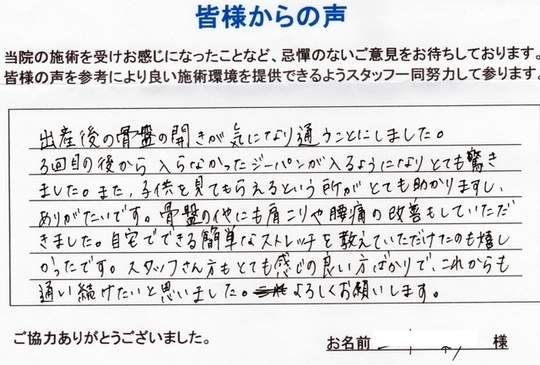 皆様からの声
当院の施術を受けお感じになったことなど、忌憚のないご意見をお待ちしております。
皆様の声を参考により良い施術環境を提供できるようスタッフ一同努力して参ります。
出産後の骨盤の開きが気になり通うことにしました。
3回目の後から入らなかったジーパンが入るようになりとても驚き
ました。また、子供を見てもらえるという所がとても助かりますし、
ありがたいです。骨盤の他にも肩こりや腰痛の改善もしていただ
きました。自宅でできる簡単なストレッチを教えていただけたのも嬉し
かったです。スタッフさん方もとても感じの良い方ばかりで、これからも
通い続けたいと思いました。よろしくお願いします。
ご協力ありがとうございました。
お名前 様